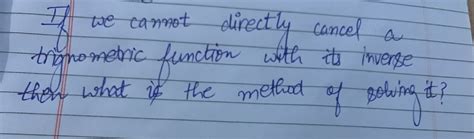 If we cannot directly cancel a
trignometric function with its inverse
then what is the method of solving it?